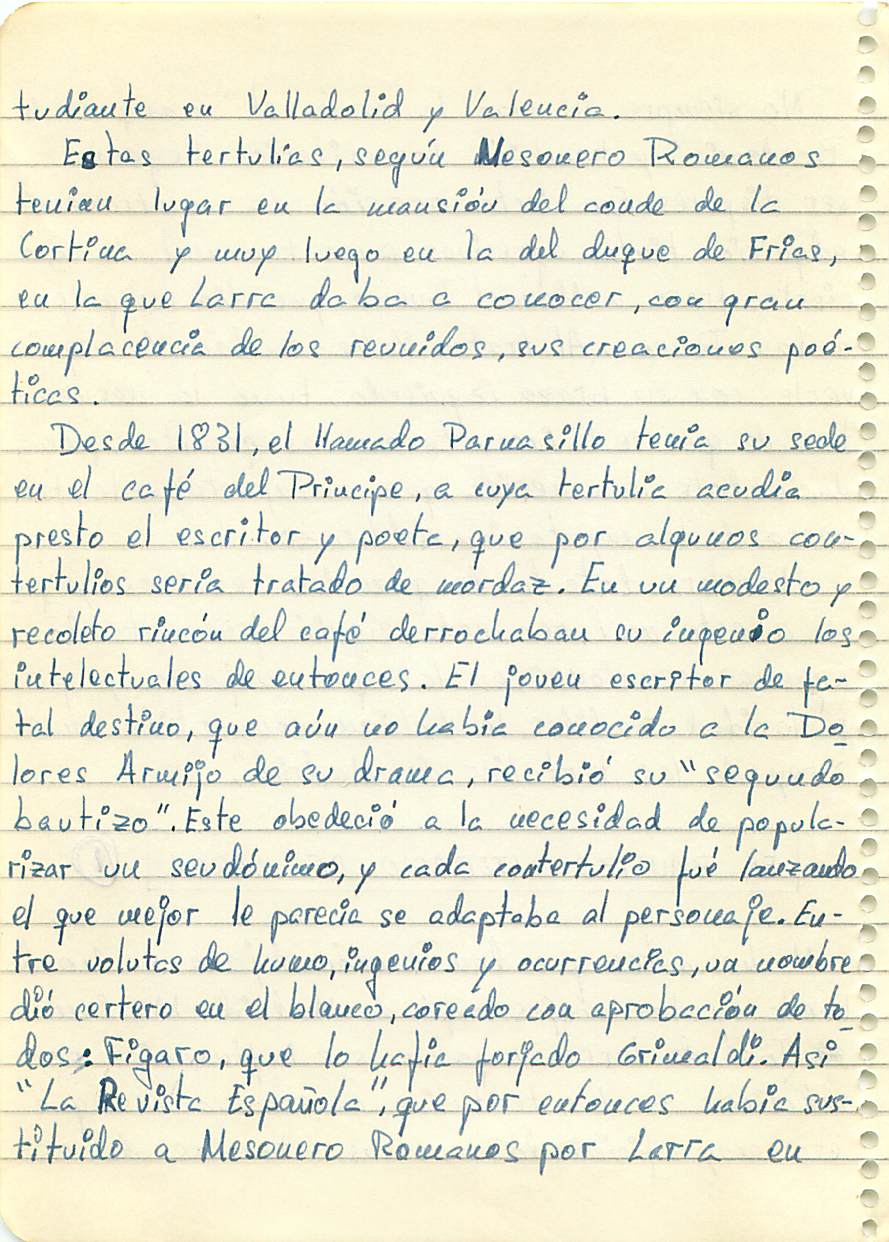 tudiante en Valladolid y Valencia.
Estas tertulias, según Mesonero Romanos
tenian lugar en la mansión del conde de la
Cortina y muy luego en la del duque de Frias,
en la que Larra daba a conocer, con gran
complacencia de los reunidos, sus creaciones poé-
ticas.
Desde 1831, el llamado Parnasillo tenia su sede
en el café del Principe, a cuya tertulia acudia
presto el escritor y poeta, que por algunos con-
tertulios seria tratado de mordaz. En un modesto y
recoleto rincón del café derrochaban su ingenio los
intelectuales de entonces. El joven escritor de fa-
tal destino, que aún no habia conocido a la Do_
lores Armijo de su drama, recibió su "segundo
bautizo". Este obedeció a la necesidad de popula-
rizar un seudónimo, y cada contertulio fué lanzando
el que mejor le parecia se adaptaba al personaje. En-
tre volutas de humo, ingenios y ocurrencias, un nombre
dió certero en el blanco, coreado con aprobación de to_
dos: Figaro, que lo hafia forjado Grimaldi. Asi
"La Revista Española", que por entonces habia sus-
tituido a Mesonero Romanos por Larra en